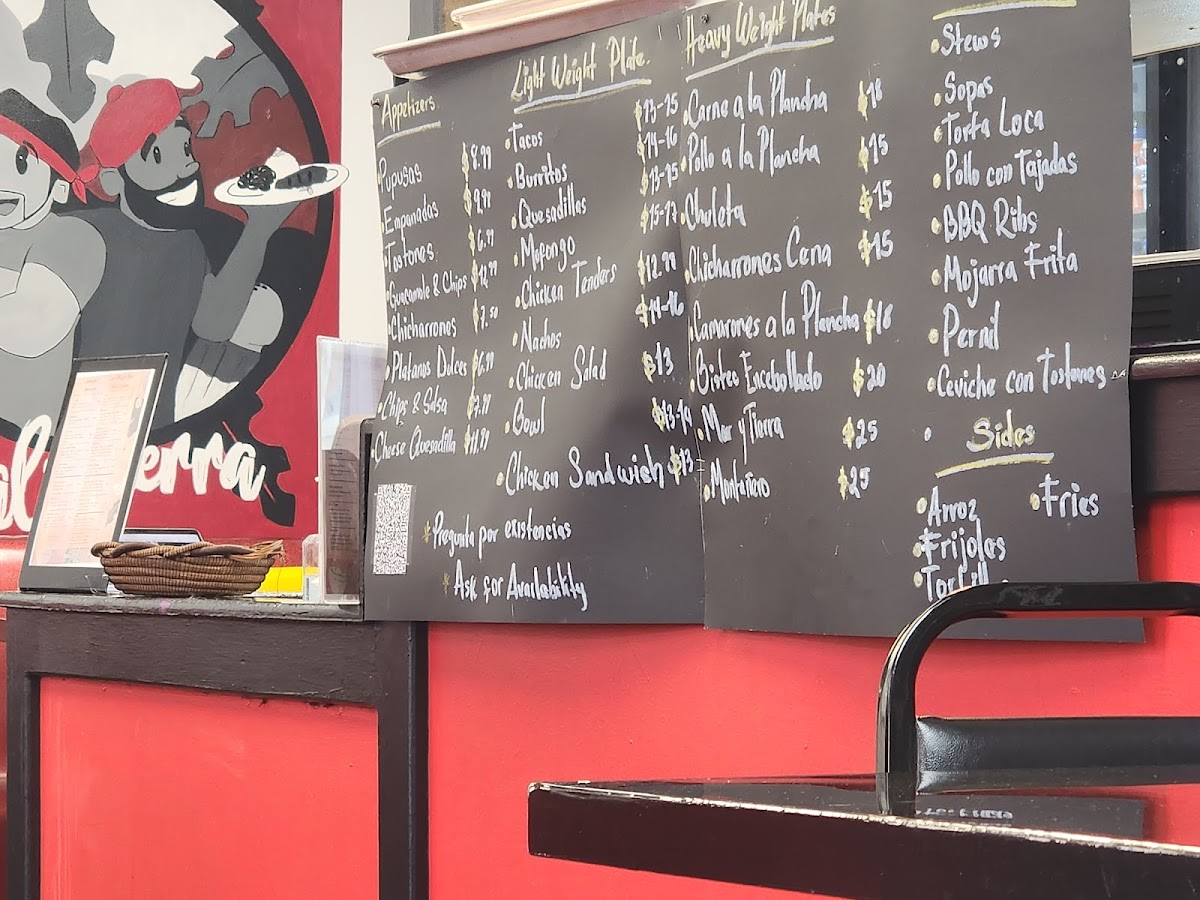 Appetizers
Pupusas $8.99
Empanadas $9.99
Tostones $6.99
Guacamole & Chips $12.99
Chicharrones $7.50
Platanos Dulces $6.99
Chips & Salsa $7.99
Cheese Quesadilla $11.99
Light Weight Plate.
Tacos $13-15
Burritos $14-16
Quesadillas $13-15
Mofongo $15-17
Chicken Tenders $12.99
Nachos $14-16
Chicken Salad $13
Bowl $13-14
Chicken Sandwich $13
* Pregunta por existencias
* Ask for Availability
Heavy Weight Plates
Carne a la Plancha $18
Pollo a la Plancha $15
Chuleta $15
Chicharrones Cena $15
Camarones a la Plancha $18
Bisteo Encebollado $20
Mar y Tierra $25
Montañero $25
Stews
Sopas
Torta Loca
Pollo con Tajadas
BBQ Ribs
Mojarra Frita
Pernil
Ceviche con Tostones
Sides
Arroz
Fries
Frijoles